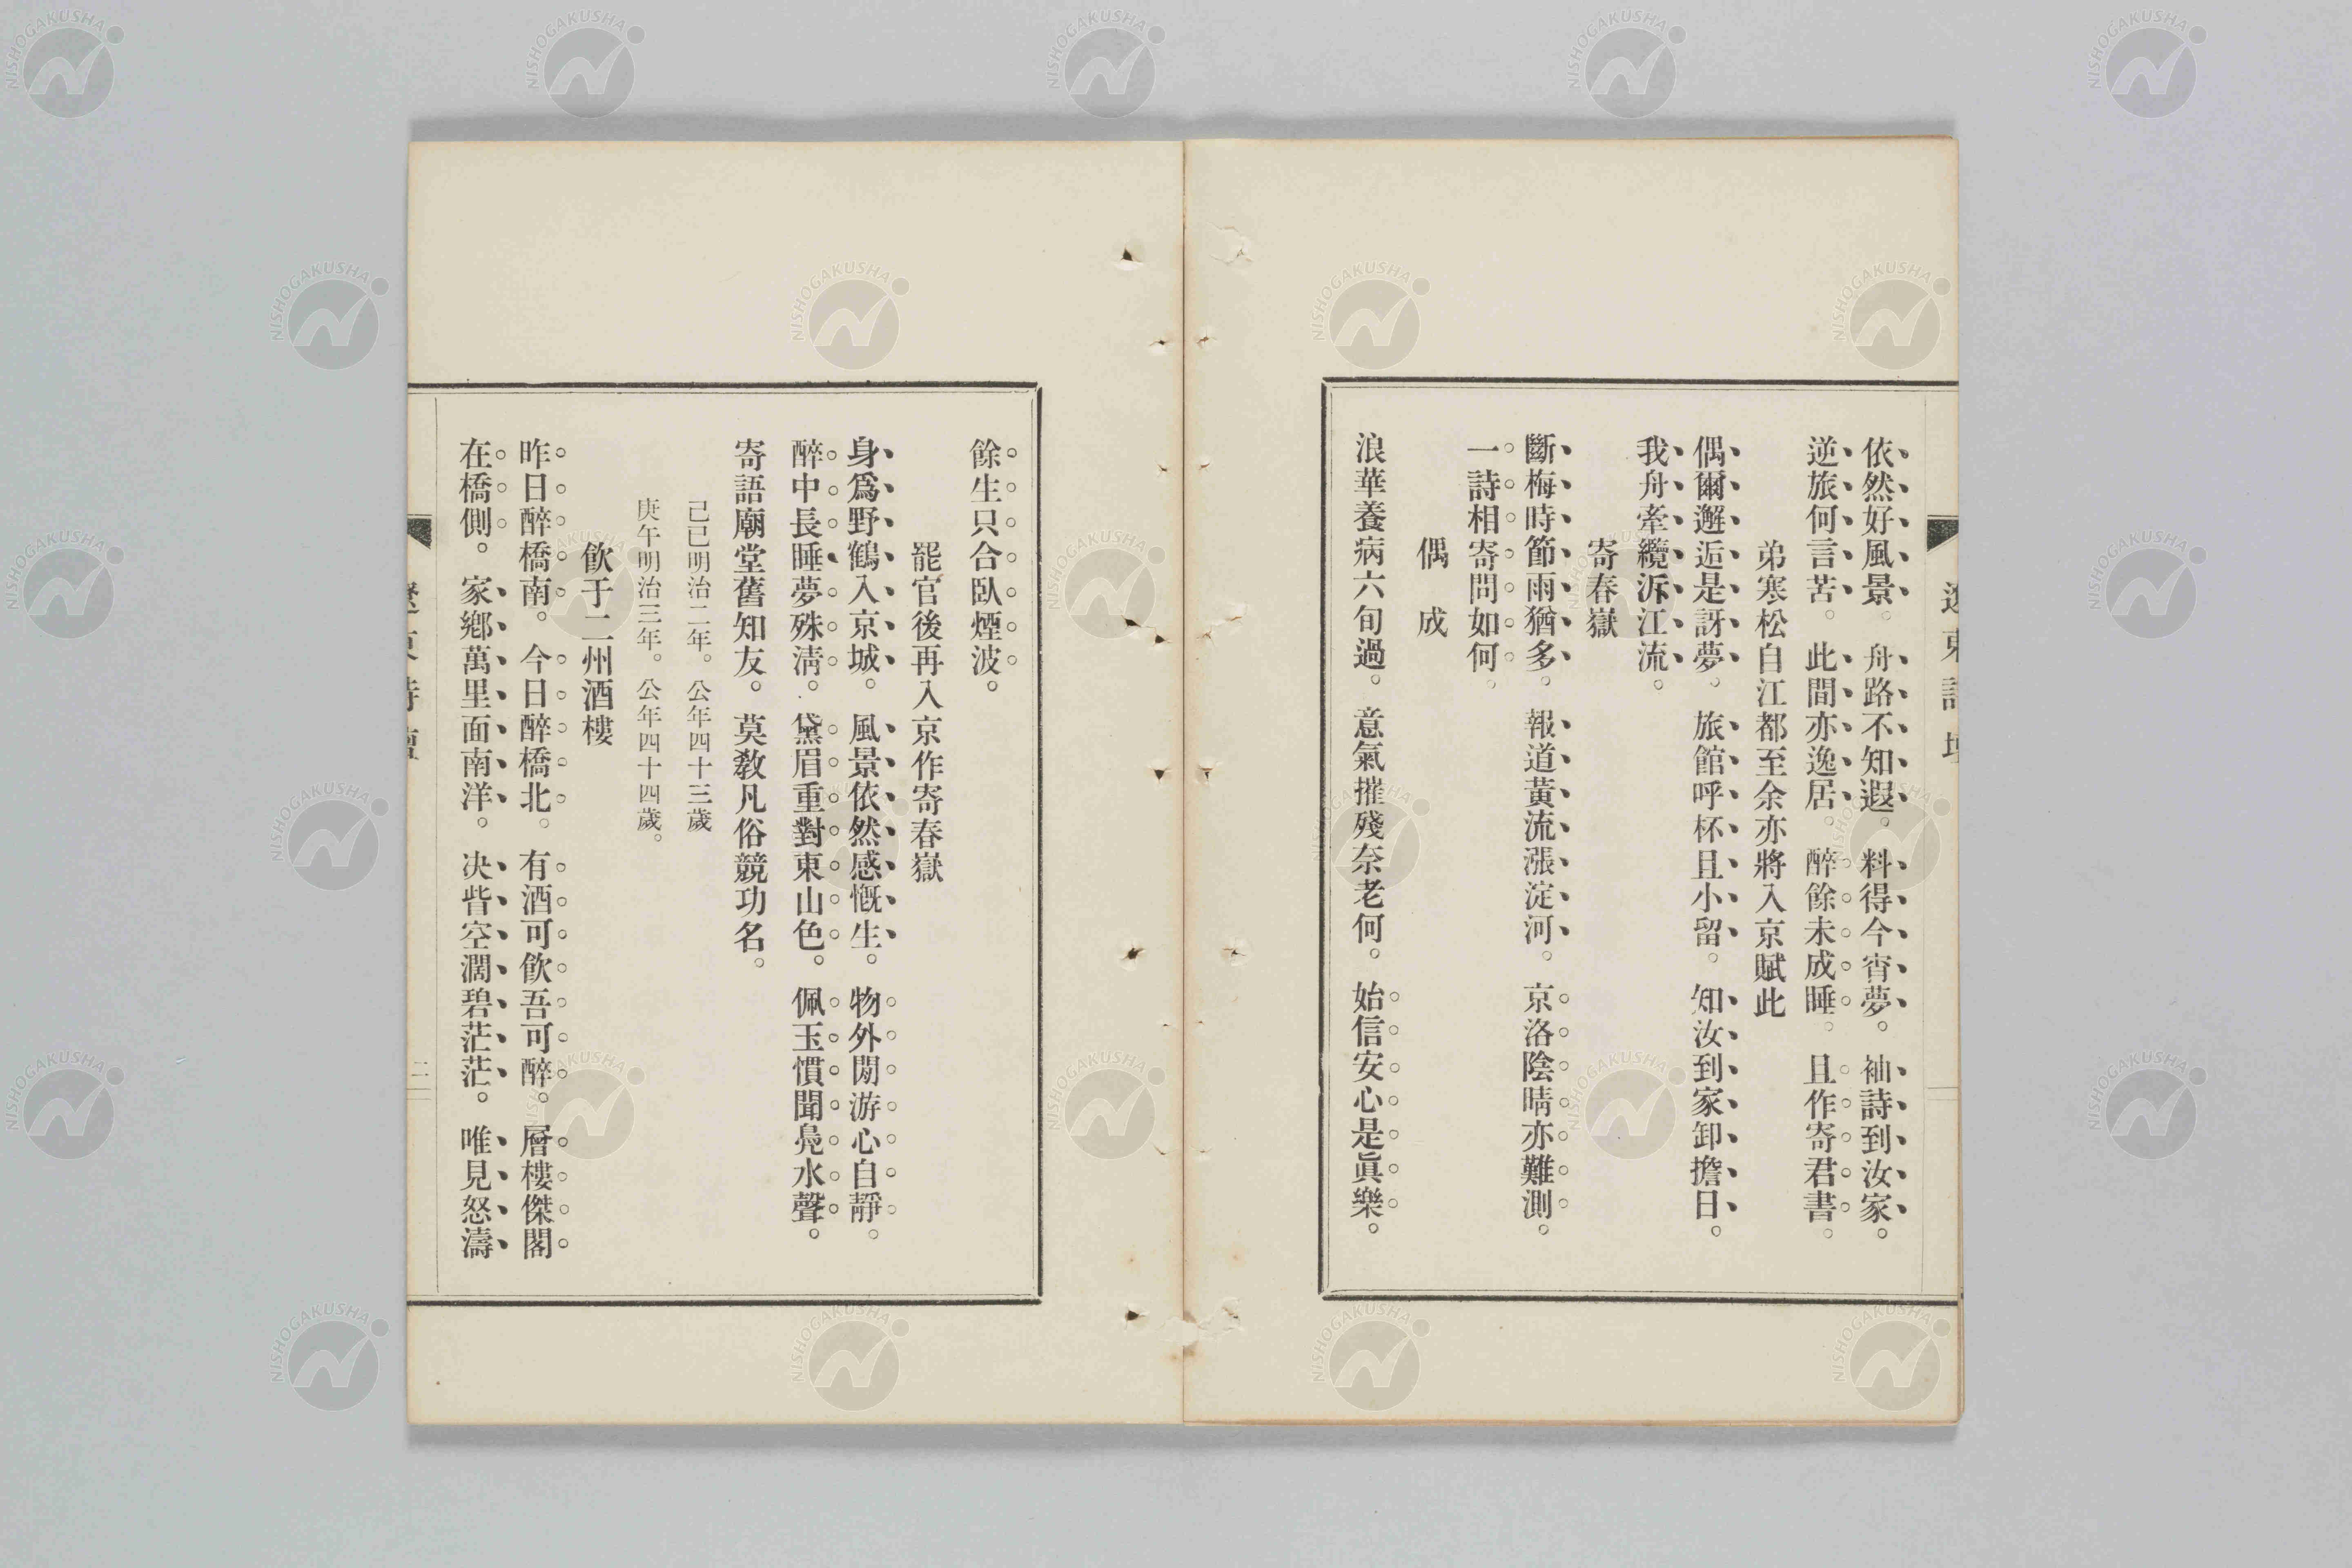 依然好風景。舟路不知遐。料得今宵夢。袖詩到汝家。
逆旅何言苦。此間亦逸居。醉餘未成睡。且作寄君書。
弟寒松自江都至余亦將入京賦此
偶爾邂逅是訝夢。旅館呼杯且小留。知汝到家卸擔日。
我舟牽纜泝江流。
寄春嶽
斷梅時節雨猶多。報道黃流漲淀河。京洛陰晴亦難測。
一詩相寄問如何。
偶成
浪華養病六旬過。意氣摧殘奈老何。始信安心是眞樂。
餘生只合臥煙波。
罷官後再入京作寄春嶽
身爲野鶴入京城。風景依然感慨生。物外閒游心自靜。
醉中長睡夢殊淸。黛眉重對東山色。佩玉慣聞鳧水聲。
寄語廟堂舊知友。莫敎凡俗競功名。
己巳明治二年。公年四十三歲
庚午明治三年。公年四十四歲。
飮于二州酒樓
昨日醉橋南。今日醉橋北。有酒可飮吾可醉。層樓傑閣
在橋側。家鄕萬里面南洋。决眥空濶碧茫茫。唯見怒濤
二